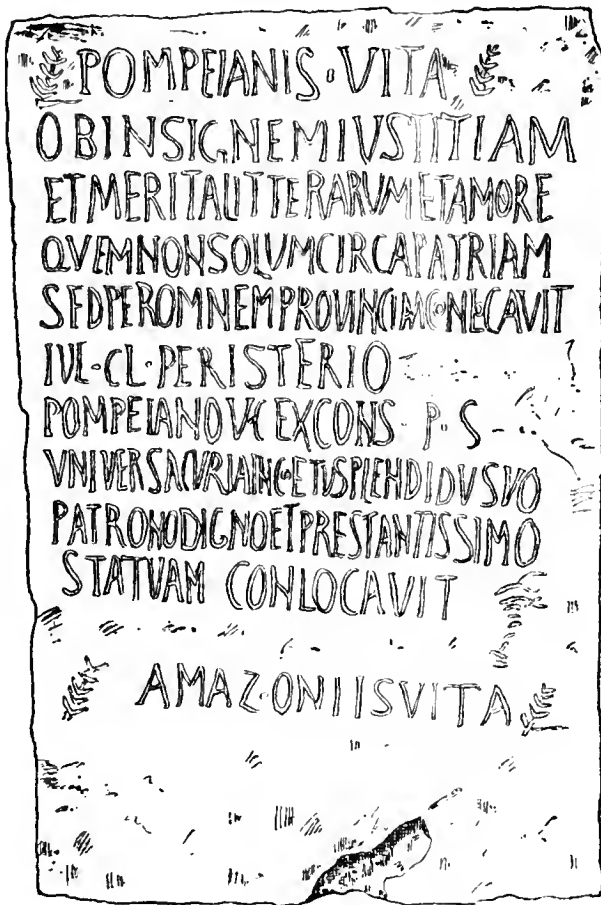 POMPEIANIS · VITA
OBINSIGNEMIVSTITIAM
ETMERITALITTERARVMETAMORE
QVEMNONSOLVMCIRCAPATRIAM
SEDPEROMNEMPROVINCIAM
IVL · CL · PERISTERIO
POMPEIANOVC EXCONS · P · S
VNIVERSACVRIA
PATRONODIGNOETPRESTANTISSIMO
STATVAM CONLOCAVIT
AMAZ·ONIISVITA